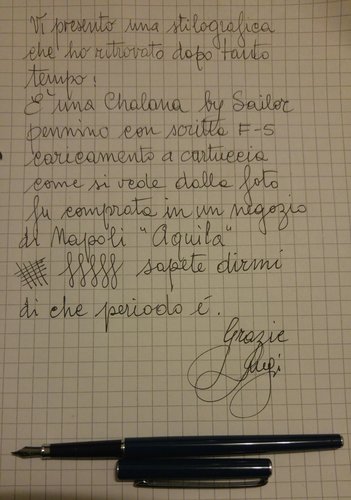 Vi presento una stilografica
che ho ritrovato dopo tanto
tempo!
E' una Chalana by Sailor
pennino con scritta F-5
caricamento a cartuccia
come si vede dalla foto
fu comprata in un negozio
di Napoli "Aquila"
sapete dirmi
di che periodo é.
Grazie
Luigi